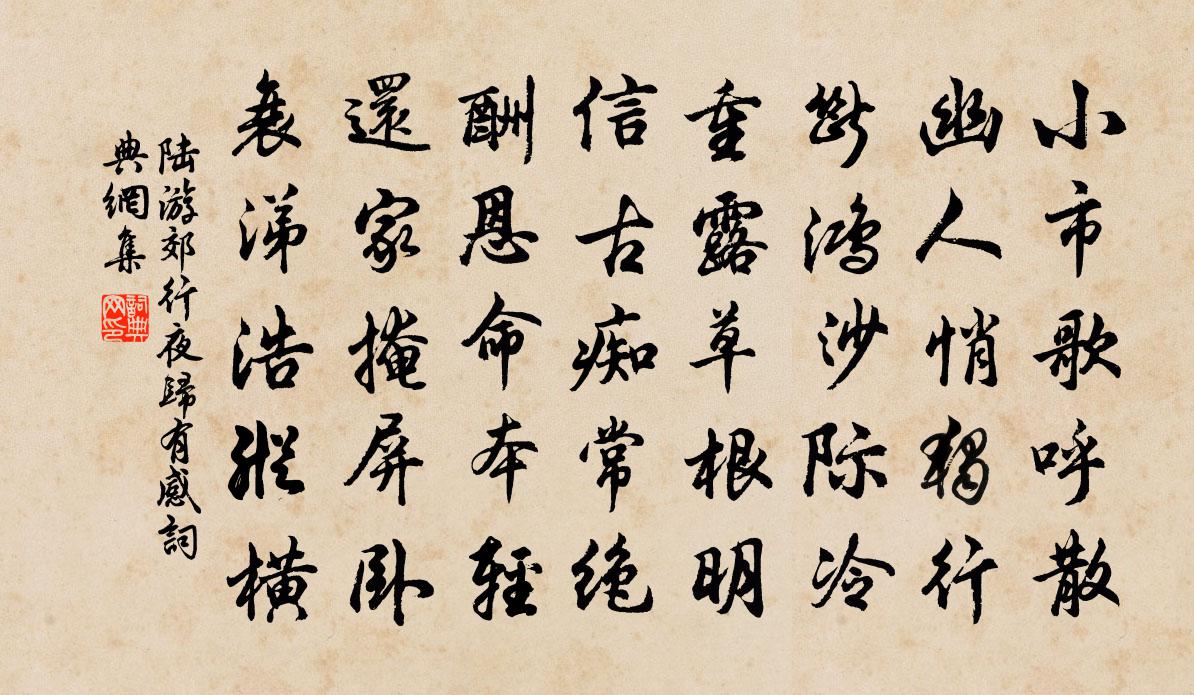 小市歌呼散
幽人悄獨行
斷鴻沙际冷
重露草根明
信古痴常絶
酬恩命本輕
還家掩屏卧
衰涕浩縱橫
陆游郊行夜歸有感詞
典網集
詞典
网印